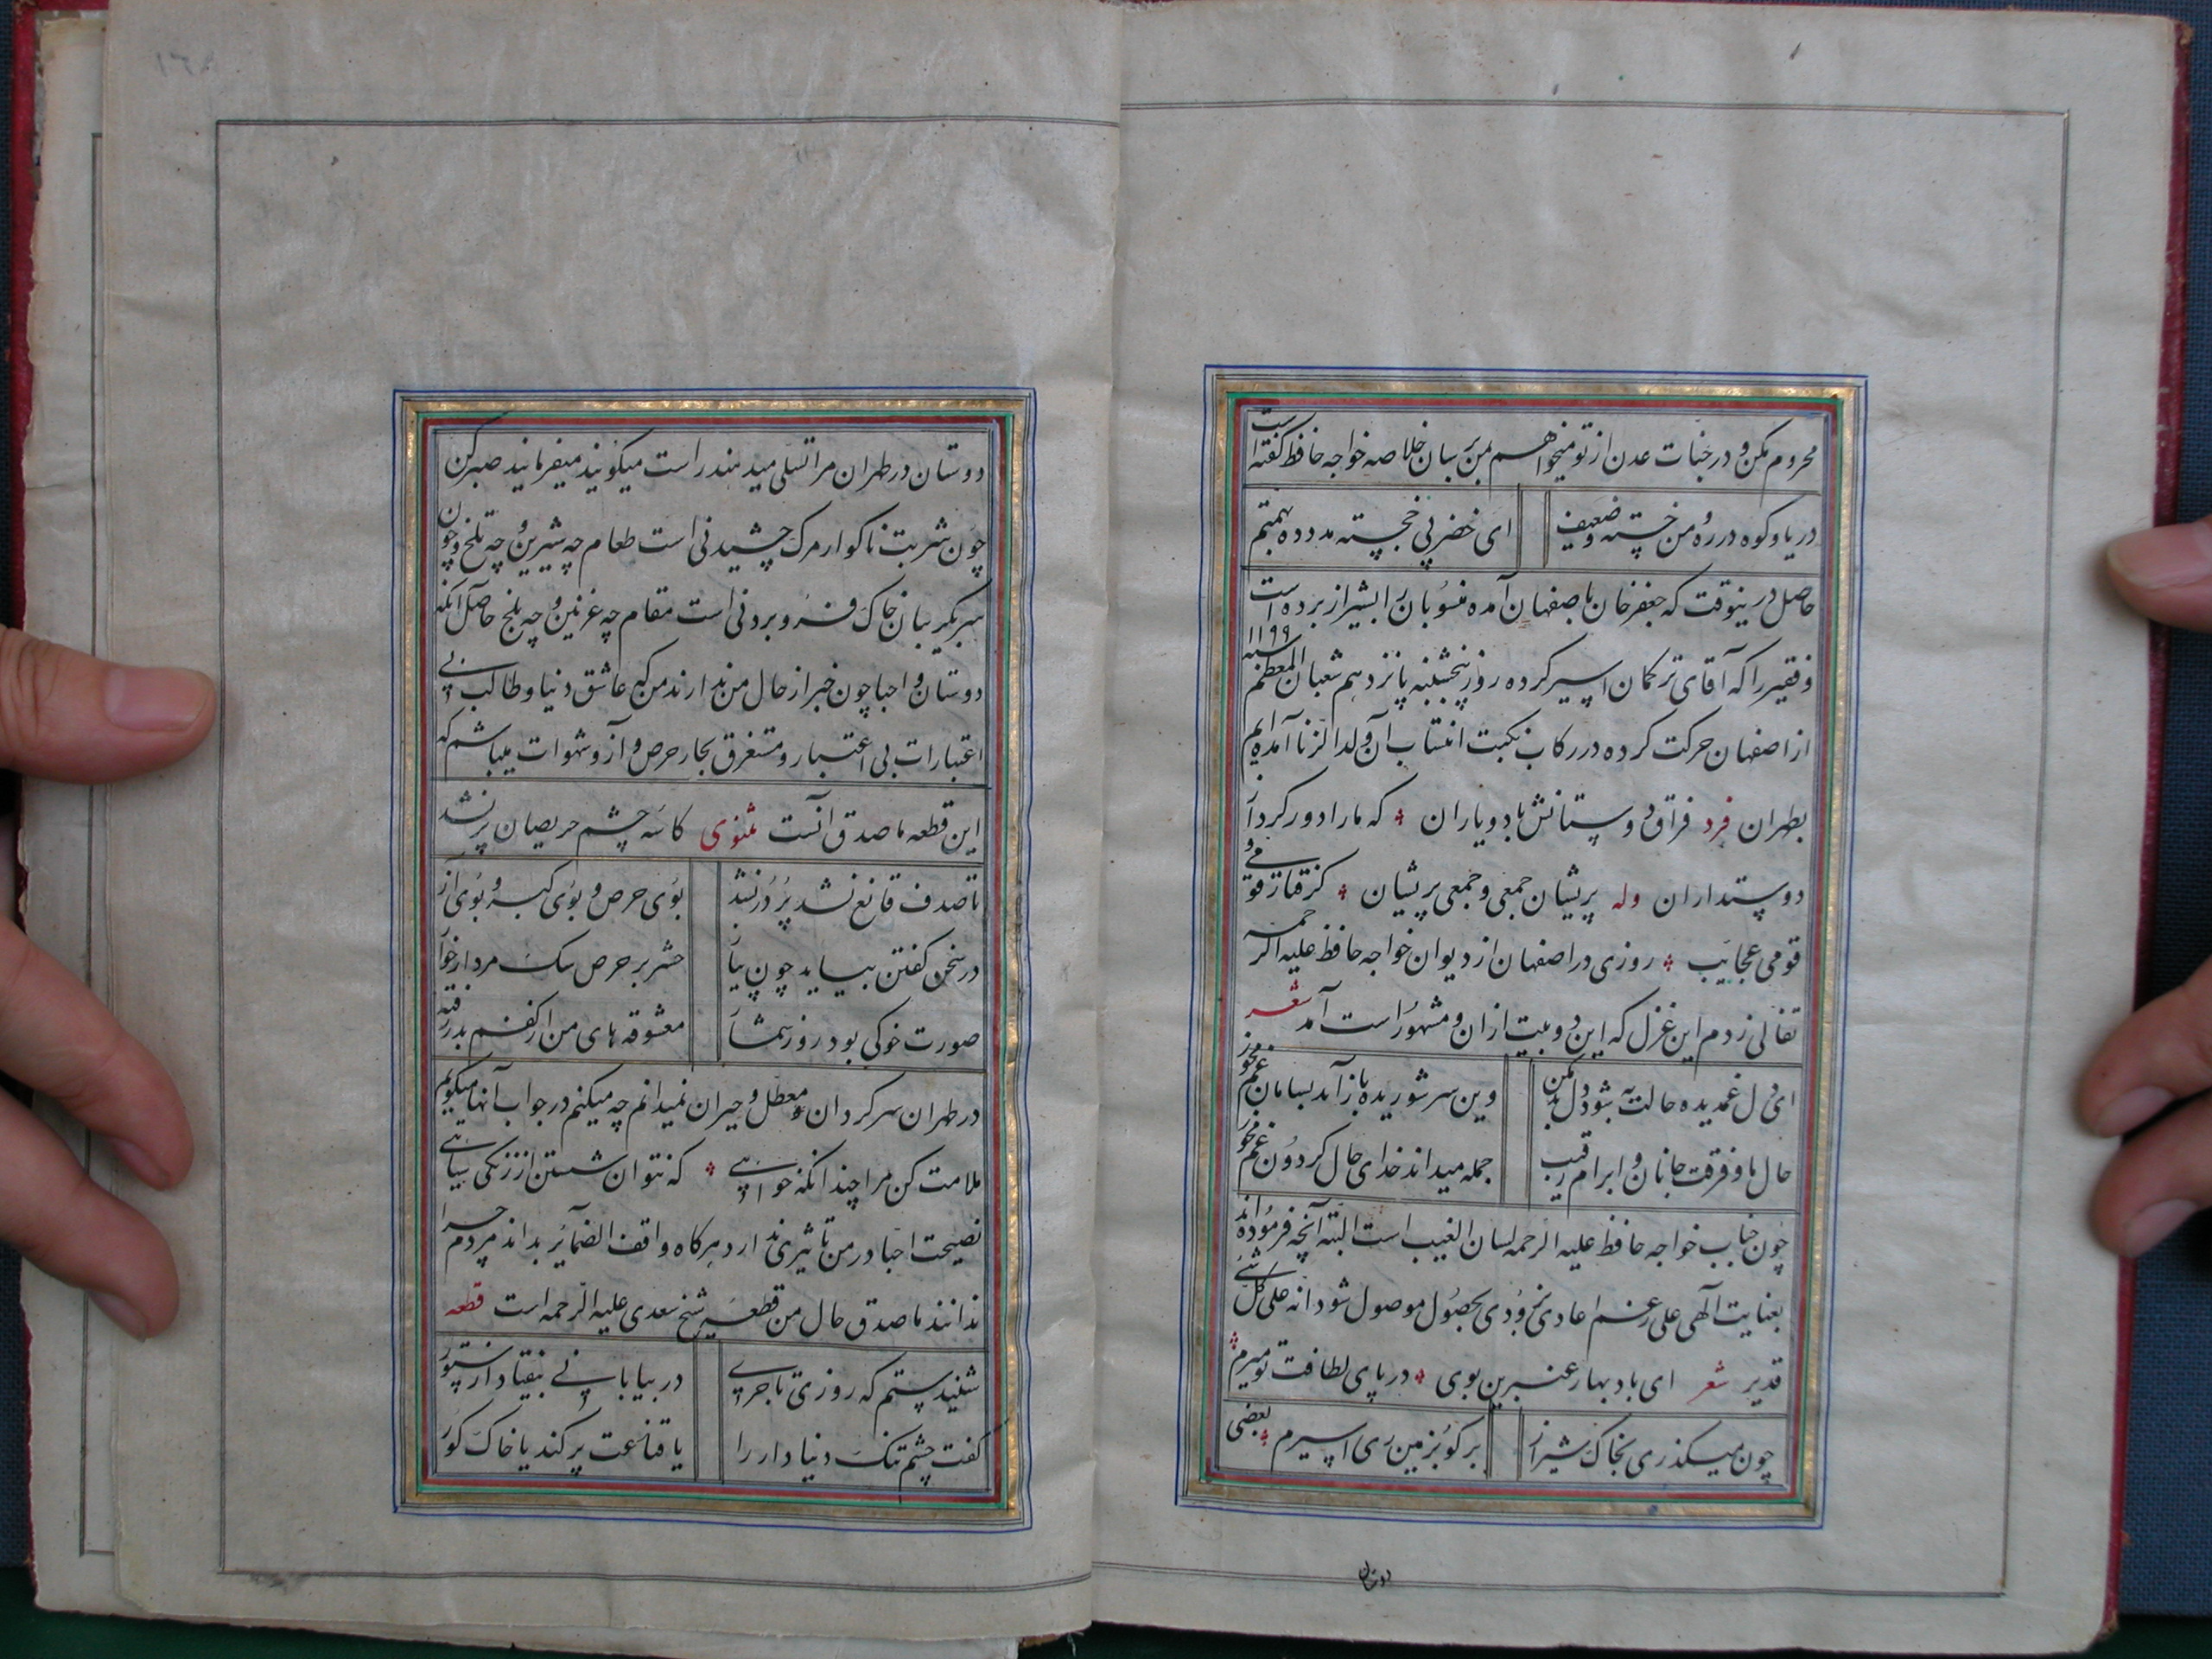 محروم مکن و در جنات عدن از تو میخواهم بمن برسان خلاصه خواجه حافظ گفته است
دریا و کوه در ره و من خسته و ضعیف ای خضر پی خجسته مدد ده بهمتم
حاصل درینوقت که جعفرخان باصفهان آمده منسوبان را بشیراز برده است
و فقیر را که آقای ترکمان اسیر کرده روز پنجشنبه پانزدهم شعبان المعظم سنه ۱۱۹۹
از اصفهان حرکت کرده در رکاب نکبت انتساب آن ولدالزنا آمده ایم
بطهران فرد فراق دوستانش باد و یاران که ما را دور کرد از
دوستداران وله پریشان جمعی و جمعی پریشان گرفتار قومی و
قومی عجایب روزی در اصفهان از دیوان خواجه حافظ علیه الرحمه
تفالی زدم این غزل که این دو بیت از ان و مشهور است آمد شعر
ای دل غمدیده حالت به شود دل بد مکن وین سر شوریده باز آید بسامان غم مخور
حال ما و فرقت جانان و ابرام رقیب جمله میداند خدای حال گردون غم مخور
چون جناب خواجه حافظ علیه الرحمه لسان الغیب است البته آنچه فرموده اند
بعنایت آلهی علی رغم اعادی بزودی بحصول موصول شود انه علی کل شیئ
قدیر شعر ای باد بهار عنبرین بوی در پای لطافت تو میرم
چون میگذری بخاک شیراز گو بزمین ری اسیرم بعضی
دوستان
دوستان در طهران مرا تسلی میدهند راست میگویند میفرمایند صبر کن
چون شربت ناگوار مرگ چشیدنی است طعام چه شیرین و چه تلخ و چون
سر بگریبان خاک فرو بردنی است مقام چه غزنین و چه بلخ حاصل آنکه
دوستان و احبا چون خبر از حال من ندارند من که عاشق دنیا و طالب
اعتبارات بی اعتبار و مستغرق بحار حرص و آز و شهوات میباشم که
این قطعه ماصدق آنست مثنوی کاسه چشم حریصان پر نشد
تا صدف قانع نشد پر در نشد بوی حرص و بوی کبر و بوی آز
در سخن گفتن بیاید چون پیاز حشر بر حرص سگ مردار خوار
صورت خوکی بود روز شمار معشوقه های من از کفم بدر رفته
در طهران سرگردان و معطل و حیران نمیدانم چه میکنم در جواب آنها میگویم
ملامت کن مرا چندانکه خواهی که نتوان شستن از زنگی سیاهی
نصیحت احبا در من تاثیری ندارد هرگاه واقف الضمائر بداند مردم چرا
ندانند ماصدق حال من قطعه شیخ سعدی علیه الرحمه است قطعه
شنیدستم که روزی تاجری در بیابانی بیفتاد از ستور
گفت چشم تنگ دنیادار را یا قناعت پر کند یا خاک گور